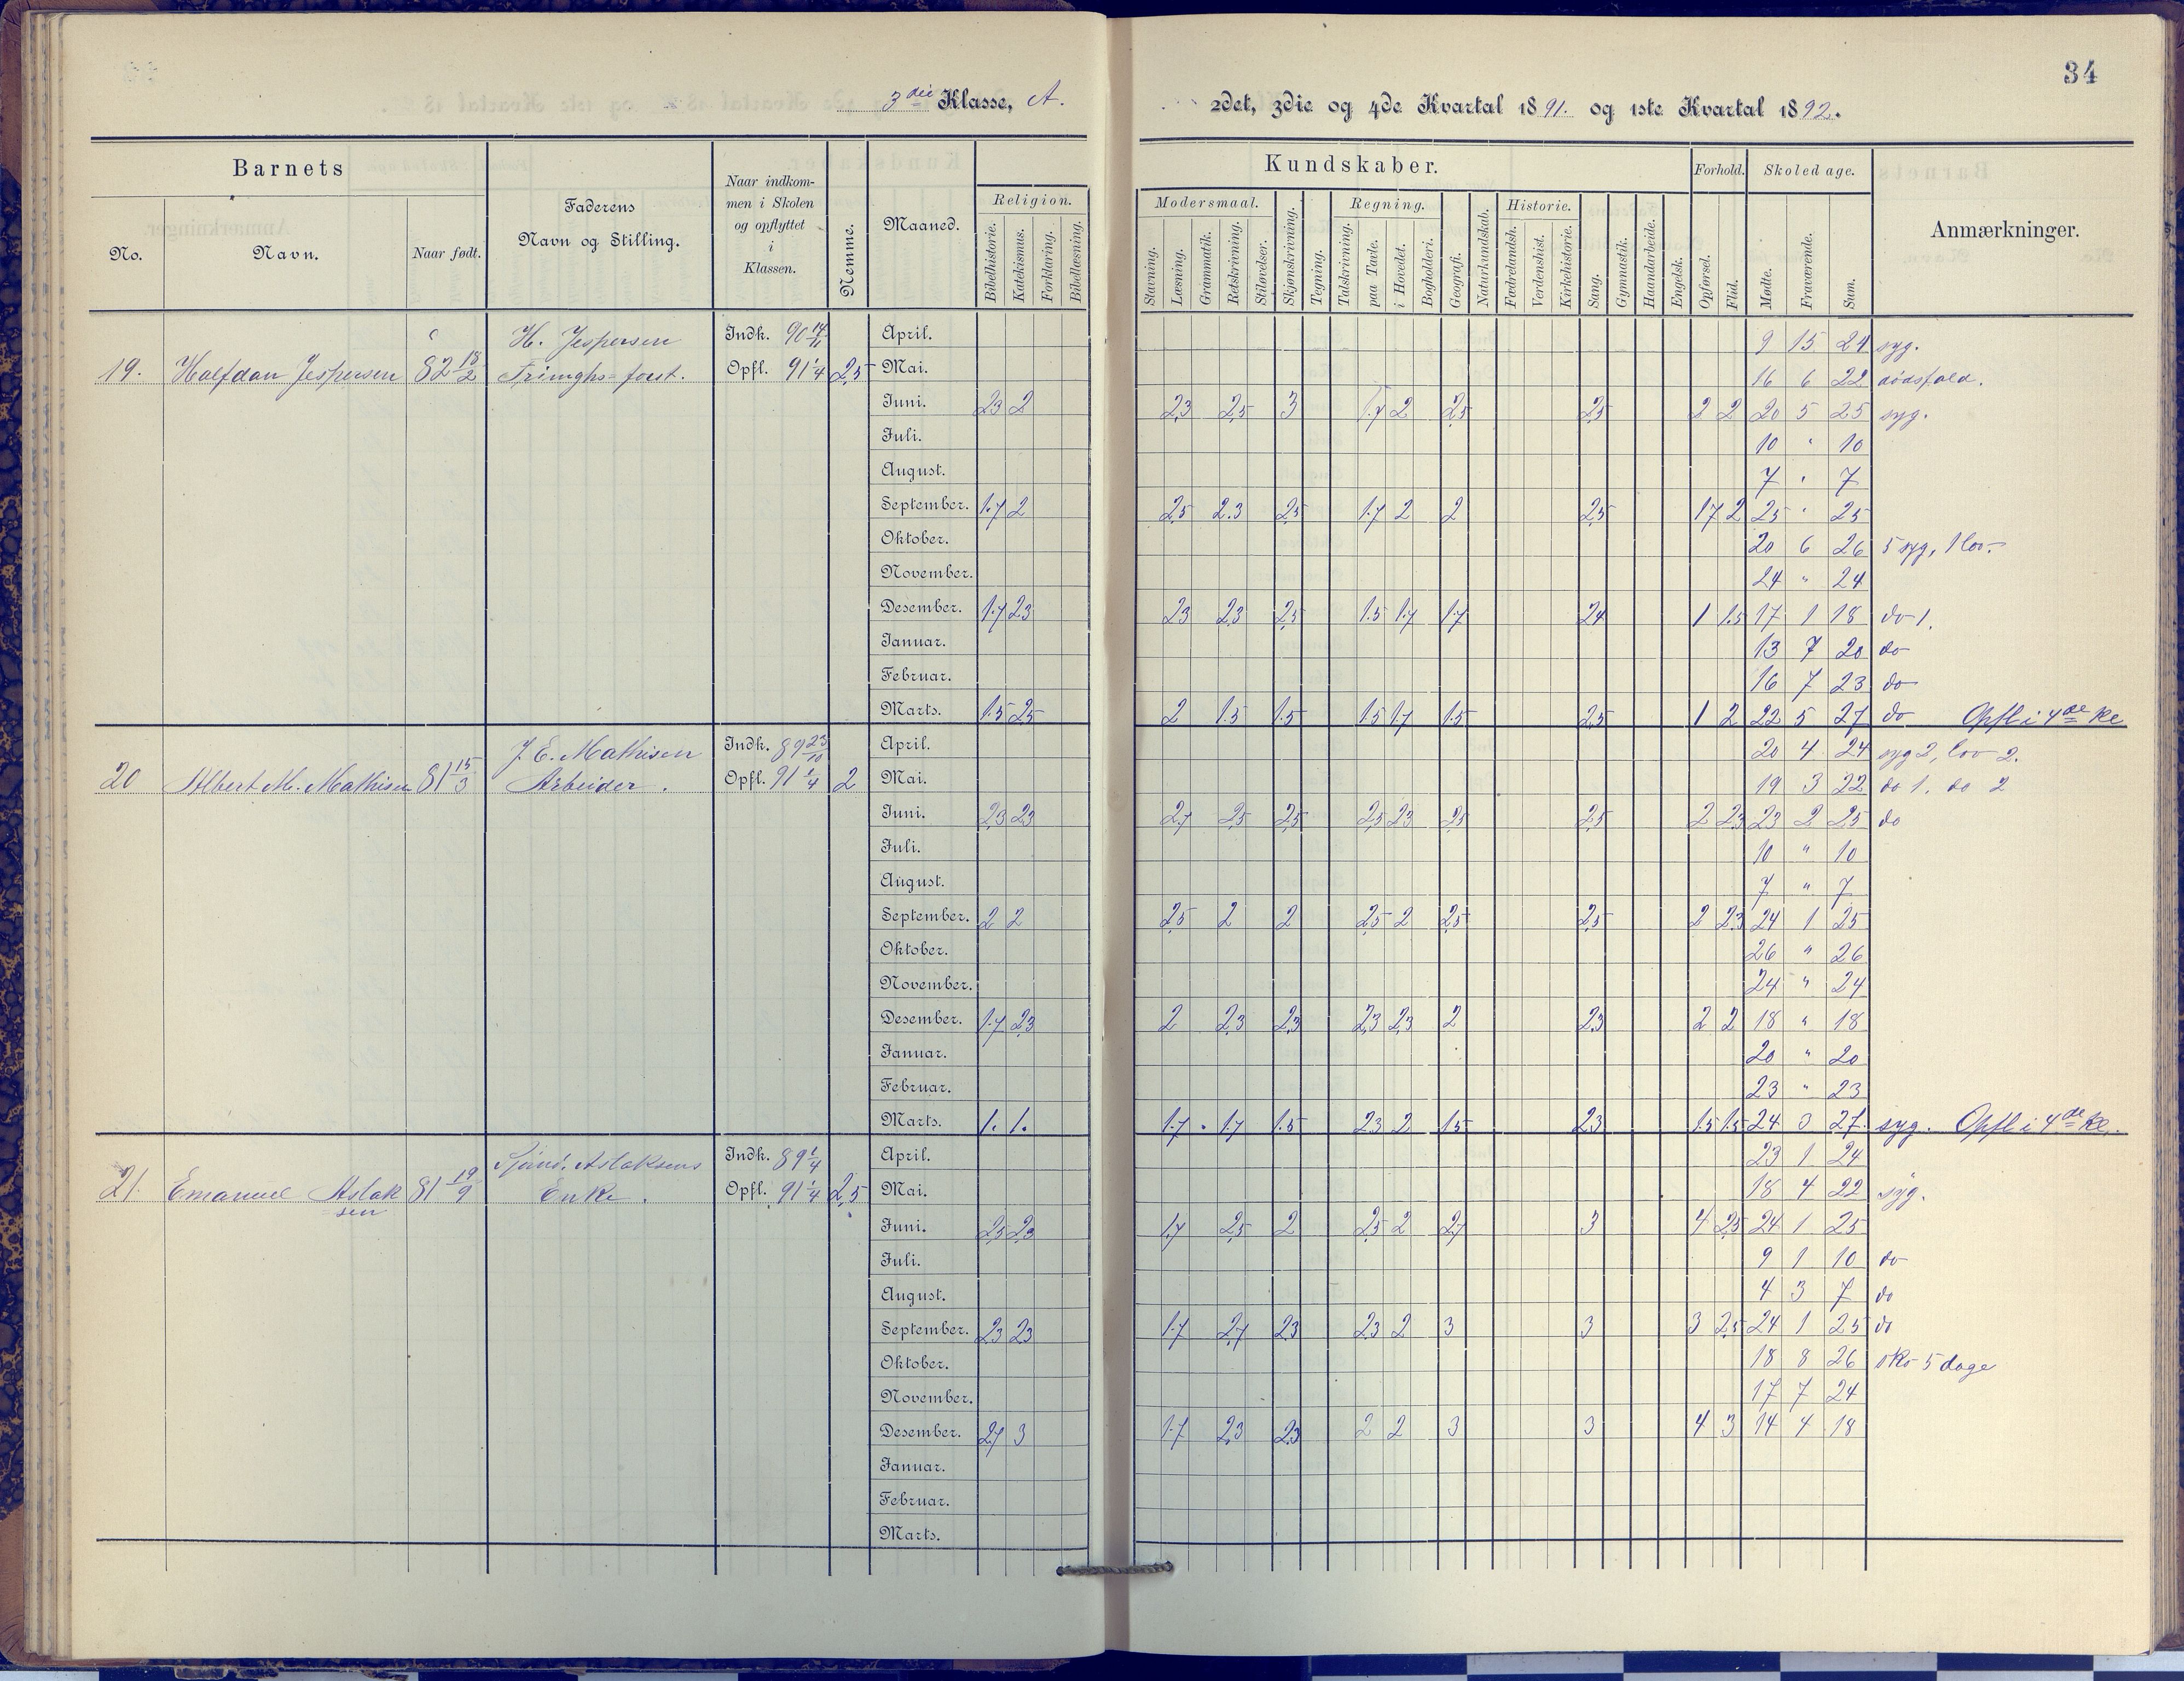 34
3die Klasse, A.
2det, 3die og 4de Kvartal 1891. og 1ste Kvartal 1892.
Barnets
No.
Navn.
Naar født.
Faderens
Navn og Stilling.
Naar indkom-
men i Skolen
og opflyttet
i
Klassen.
Nemme.
Maaned.
Kundskaber.
Religion.
Bibelhistorie. Katekismus. Forklaring. Bibellæsning.
Modersmaal.
Stavning. Læsning. Grammatik. Retskrivning. Stiløvelser.
Skjønskrivning. Tegning.
Regning.
Talskrivning. paa Tavle. i Hovedet. Bogholderi.
Geografi. Naturkundskab.
Historie.
Fædrelandsh. Verdenshist. Kirkehistorie.
Sang. Gymnastik. Haandarbeide. Engelsk.
Forhold.
Opførsel. Flid.
Skoledage.
Mødte. Fraværende. Sum.
Anmærkninger.
H. Jespersen Indk. 90 April. 9 15 24 syg.
19. Halfdan Jespersen 82 18/2 Opfl. 91 1/4 2,5 Mai. 16 6 22 dødsfald.
Juni. 2,3 2 2,3 2,5 3 1.7 2 2,5 2,5 2 2 20 5 25 syg.
Juli. 10 " 10
August. 7 " 7
September. 1.7 2 2,5 2.3 2,5 1.7 2 2 2,5 1.7 2 25 " 25
Oktober. 20 6 26 5 syg, 1 lov.
November. 24 " 24
Desember. 1.7 2,3 2,3 2,3 2,5 1.5 1.7 1.7 2,4 1 1.5 17 1 18 do 1.
Januar. 13 7 20 do
Februar. 16 7 23 do
Marts. 1.5 2,5 2 1.5 1.5 1.5 1.7 1.5 2,5 1 2 22 5 27 do Opfl i 4de Kl
J. E. Mathisen Indk. 89 23/10 April. 20 4 24 syg 2, lov 2.
20 Albert M. Mathisen 81 15/3 Arbeider. Opfl. 91 1/4 2 Mai. 19 3 22 do 1. do 2
Juni. 2,3 2,3 2,7 2,5 2,5 2,5 2,3 2,5 2,5 2 2,3 23 2 25 do
Juli. 10 " 10
August. 7 " 7
September. 2 2 2,5 2 2 2,5 2 2,5 2,5 2 2,3 24 1 25
Oktober. 26 " 26
November. 24 " 24
Desember. 1.7 2,3 2 2,3 2,3 2,3 2,3 2 2,3 2 2 18 " 18
Januar. 20 " 20
Februar. 23 " 23
Marts. 1. 1. 1.7 1.7 1.5 2,3 2 1.5 2,3 1.5 1.5 24 3 27 syg. Opfl i 4de Kl.
Aslaksens Indk. 89 1/4 April. 23 1 24
21. Emanuel Aslak 81 19/9 Enke. Opfl. 91 1/4 2,5 Mai. 18 4 22 syg.
sen
Juni. 2,5 2,3 1,7 2,5 2 2,5 2 2,7 3 4 2,5 24 1 25
Juli. 9 1 10 do
August. 4 3 7 do
September. 2,3 2,3 1.7 2,7 2,3 2,3 2 3 3 3 2,5 24 1 25 do
Oktober. 18 8 26 sko 5 dage
November. 17 7 24
Desember. 2,7 3 1.7 2,3 2,3 2 2 3 3 4 3 14 4 18
Januar.
Februar.
Marts.